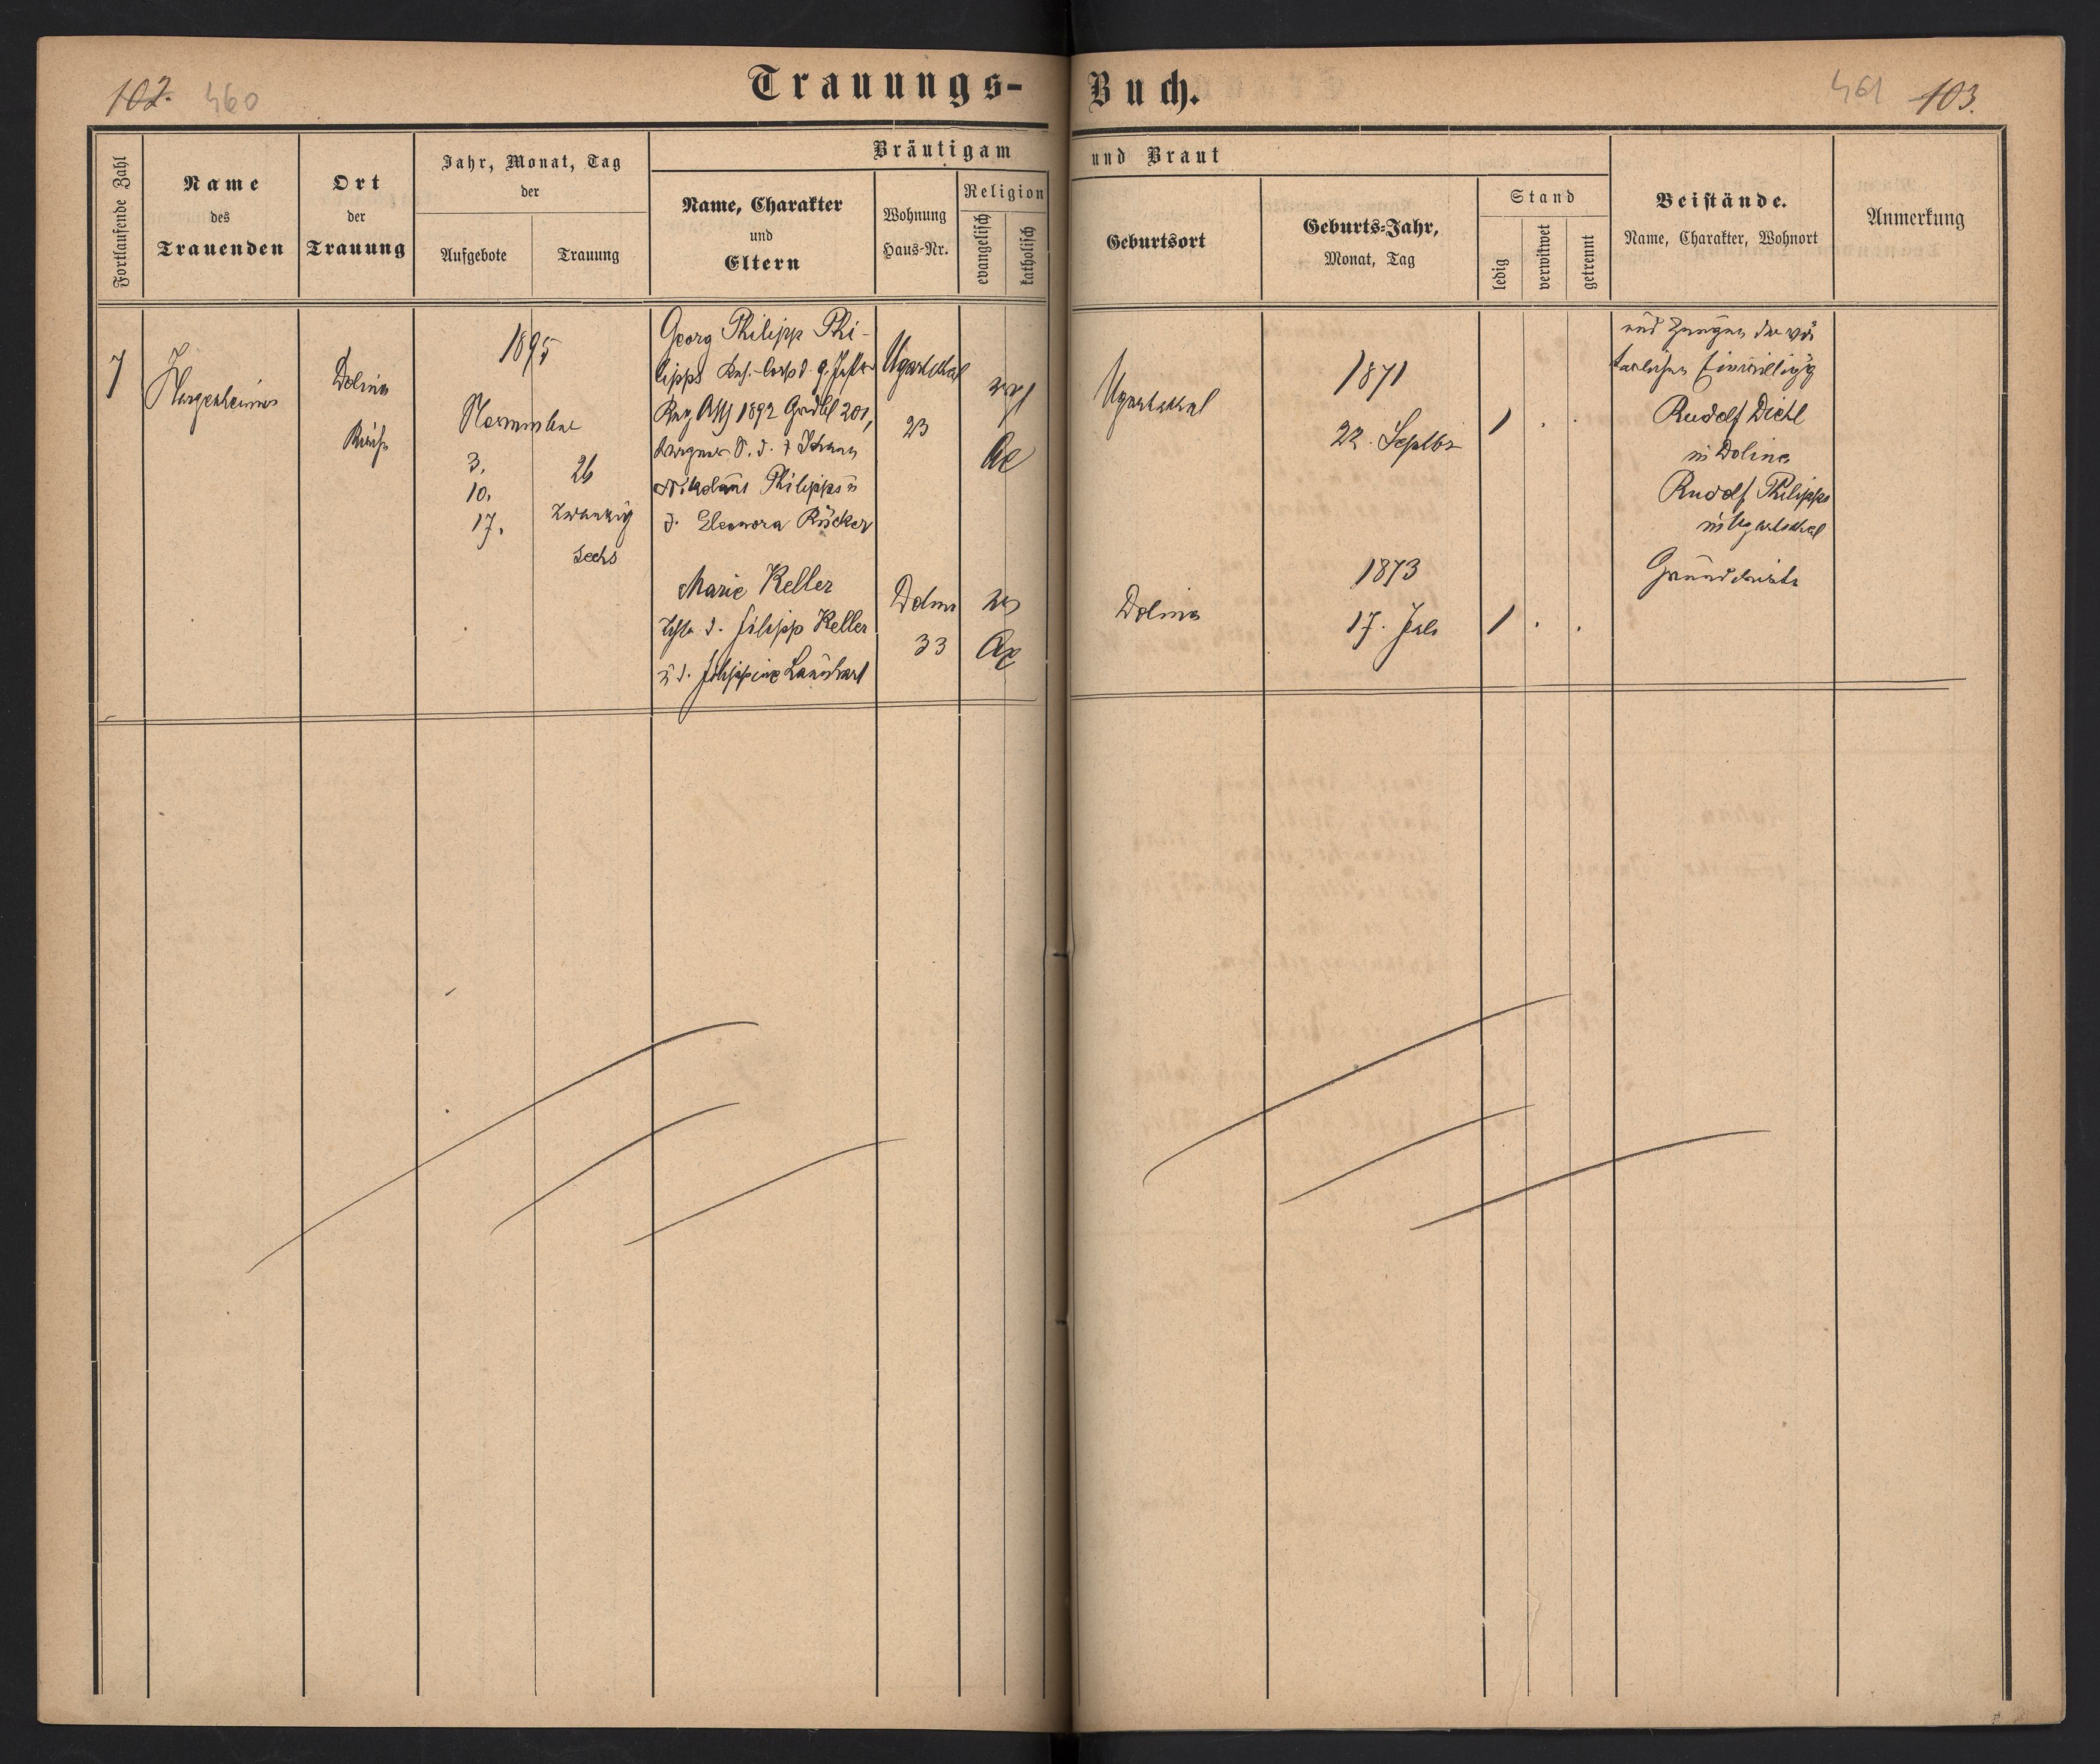 102. 460
Trauungs-
Buch.
461 103.
Fortlaufende Zahl
Name
des
Trauenden
Ort
der
Trauung
Jahr, Monat, Tag
der
Aufgebote
Trauung
Bräutigam
Name, Charakter
und
Eltern
Wohnung
Haus-Nr.
Religion
evangelisch
katholisch
und Braut
Geburtsort
Geburts-Jahr,
Monat, Tag
Stand
ledig
verwitwet
getrennt
Beistände.
Name, Charakter, Wohnort
Anmerkung
7
Hargesheimer
Dolina
Kirche
1895
November
3.
10.
17.
26
zwanzig
sechs
Georg Philipp Phi-
lipps
1892 201,
Philipps u
d. Eleonora Rücker
Ugartsthal
23
evg
AC
Ugartsthal
1871
22. Septbr
1 . .
und Zeugen der vä
terlichen
Rudolf Diehl
in Dolina
Rudolf Philipps
in Ugartsthal
Grundwirte
Marie Keller
d. Filipp Keller
u d. Filippine Launhart
Dolina
33
ev
AC
Dolina
1873
17. Juli
1 . .